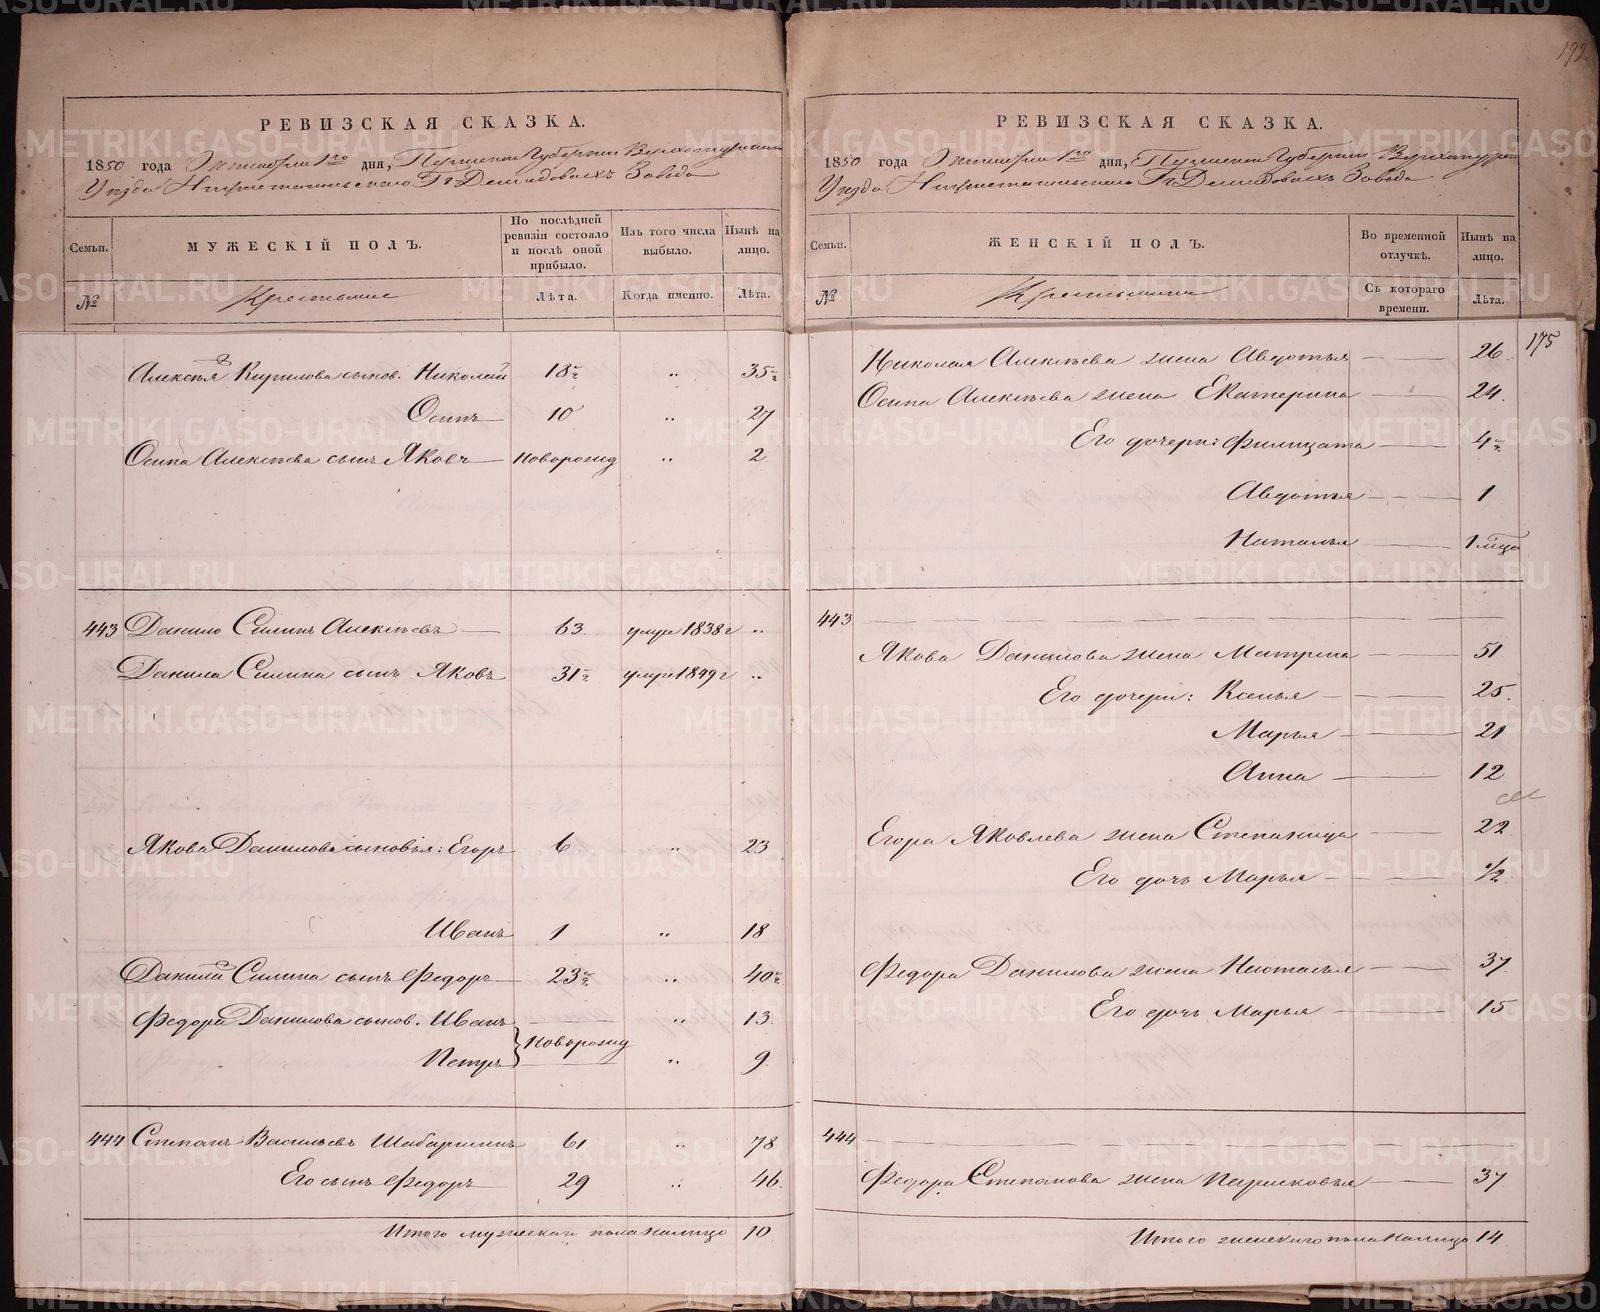 РЕВИЗСКАЯ СКАЗКА.
1850 года Октября 1го дня, Пермской Губернии Верхотурскаго
Уѣзда Нижнетагильскаго Гг Демидовыхъ Завода
Семьи.
МУЖЕСКІЙ ПОЛЪ.
По послѣдней ревизіи состояло и послѣ оной прибыло.
Изъ того числа выбыло.
Нынѣ на лицо.
№
Крестьяне
Лѣта.
Когда именно.
Лѣта.
Алексѣя Кирилова сынов. Николай 18 ½ „ 35 ½
Осипъ 10 „ 27
Осипа Алексѣева сынъ Яковъ Новорожд „ 2
443 Данило Силинъ Алексѣевъ 63 умре 1838 г „
Данила Силина сынъ Яковъ 31 ½ умре 1849 г „
Якова Данилова сыновья: Егоръ 6 „ 23
Иванъ 1 „ 18
Данилы Силина сынъ Федоръ 23 ½ „ 40 ½
Федора Данилова сынов. Иванъ „ 13
Новорожд
Петръ „ 9
444 Степанъ Васильевъ Шабаршинъ 61 „ 78
Его сынъ Федоръ 29 „ 46.
Итого мужеска пола налицо 10
192
РЕВИЗСКАЯ СКАЗКА.
1850 года Октября 1го дня, Пермской Губернии Верхотурск
Уѣзда Нижнетагильскаго Гг Демидовыхъ Завода
Семьи.
ЖЕНСКІЙ ПОЛЪ.
Во временной отлучкѣ.
Нынѣ на лицо.
№
Крестьянки
Съ котораго времени.
Лѣта.
175
Николая Алексѣева жена Авдотья 26
Осипа Алексѣева жена Екатерина 24.
Его дочери: Филицата 4 ½
Авдотья 1
Наталья 1 мца
443
Якова Данилова жена Матрена 51
Его дочери: Ксенья 25.
Марья 21
Анна 12
Егора Яковлева жена Степанида 22
Его дочь Марья ½
Федора Данилова жена Настасья 37
Его дочь Марья 15
444
Федора Степанова жена Парасковья 37
Итого женскаго пола налицо 14
METRIKI.GASO-URAL.RU